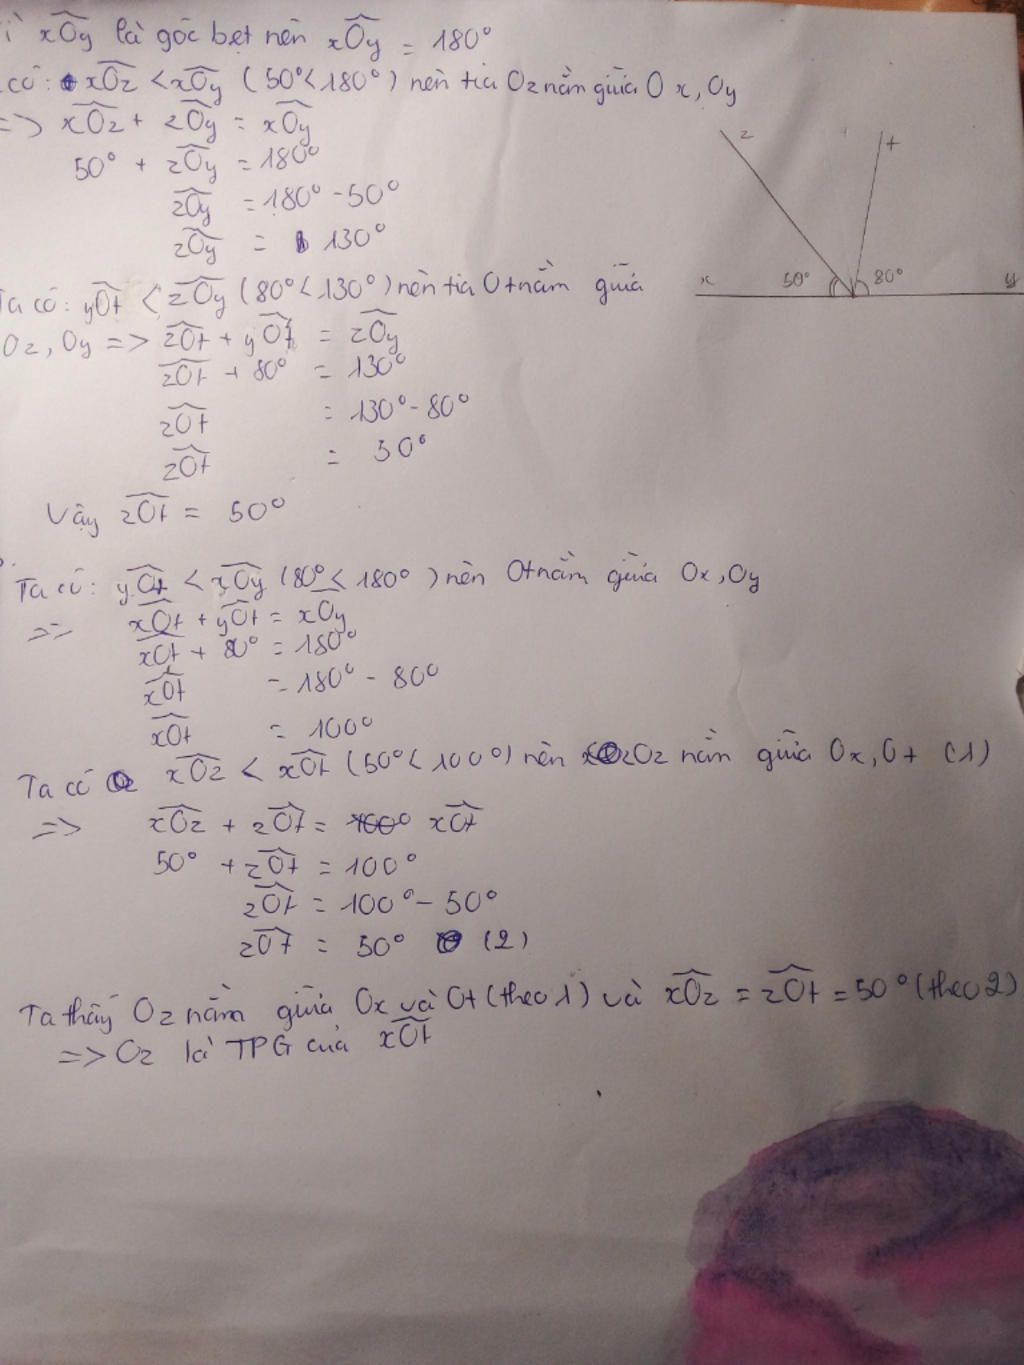 ì xÔy là góc bẹt nên xÔy = 180°
có: xÔz < xÔy (50° < 180°) nên tia Oz nằm giữa Ox, Oy
=> xÔz + zÔy = xÔy
50° + zÔy = 180°
zÔy = 180° - 50°
zÔy = 130°
Ta có: yÔt < zÔy (80° < 130°) nên tia Ot nằm giữa
Oz, Oy => zÔt + yÔt = zÔy
zÔt + 80° = 130°
zÔt = 130° - 80°
zÔt = 50°
Vậy zÔt = 50°
Ta có: yÔt < xÔy (80° < 180°) nên Ot nằm giữa Ox, Oy
=> xÔt + yÔt = xÔy
xÔt + 80° = 180°
xÔt = 180° - 80°
xÔt = 100°
Ta có xÔz < xÔt (50° < 100°) nên Oz nằm giữa Ox, Ot (1)
=> xÔz + zÔt = xÔt
50° + zÔt = 100°
zÔt = 100° - 50°
zÔt = 50° (2)
Ta thấy Oz nằm giữa Ox và Ot (theo 1) và xÔz = zÔt = 50° (theo 2)
=> Oz là TPG của xÔt
z t
x 50° 80° y